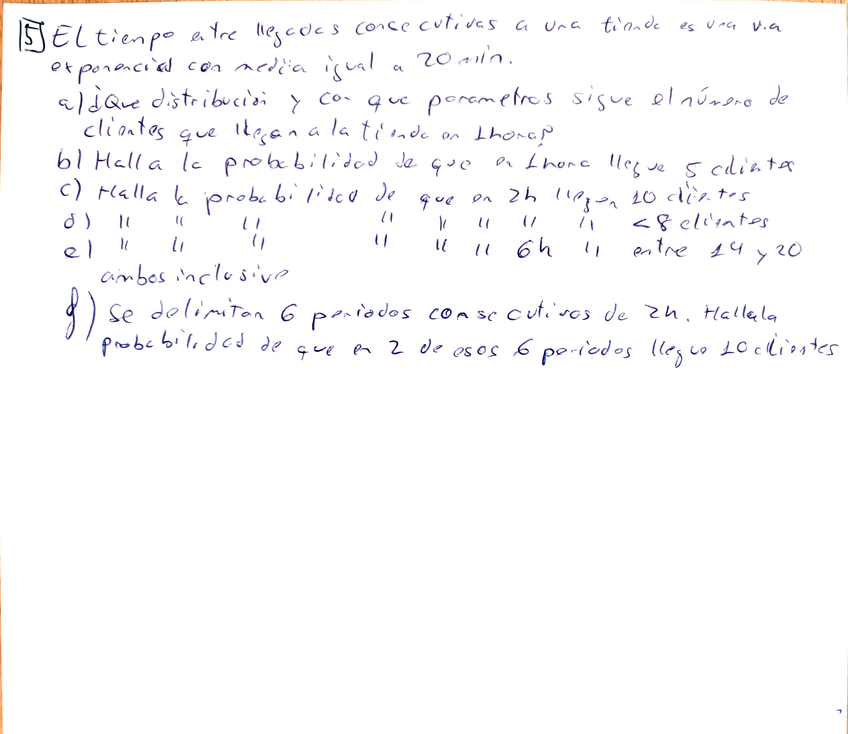 5 El tiempo entre llegadas consecutivas a una tienda es una v.a
exponencial con media igual a 20 min.
a) ¿Que distribución y con que parametros sigue el número de
clientes que llegan a la tienda en 1 hora?
b) Halla la probabilidad de que en 1 hora llegue 5 clientes
c) Halla la probabilidad de que en 2h llegen 10 clientes
d) " " " " " " " " < 8 clientes
e) " " " " " " 6h " entre 14 y 20
ambos inclusive
f) Se delimitan 6 periodos consecutivos de 2h. Halla la
probabilidad de que en 2 de esos 6 periodos llegue 10 clientes